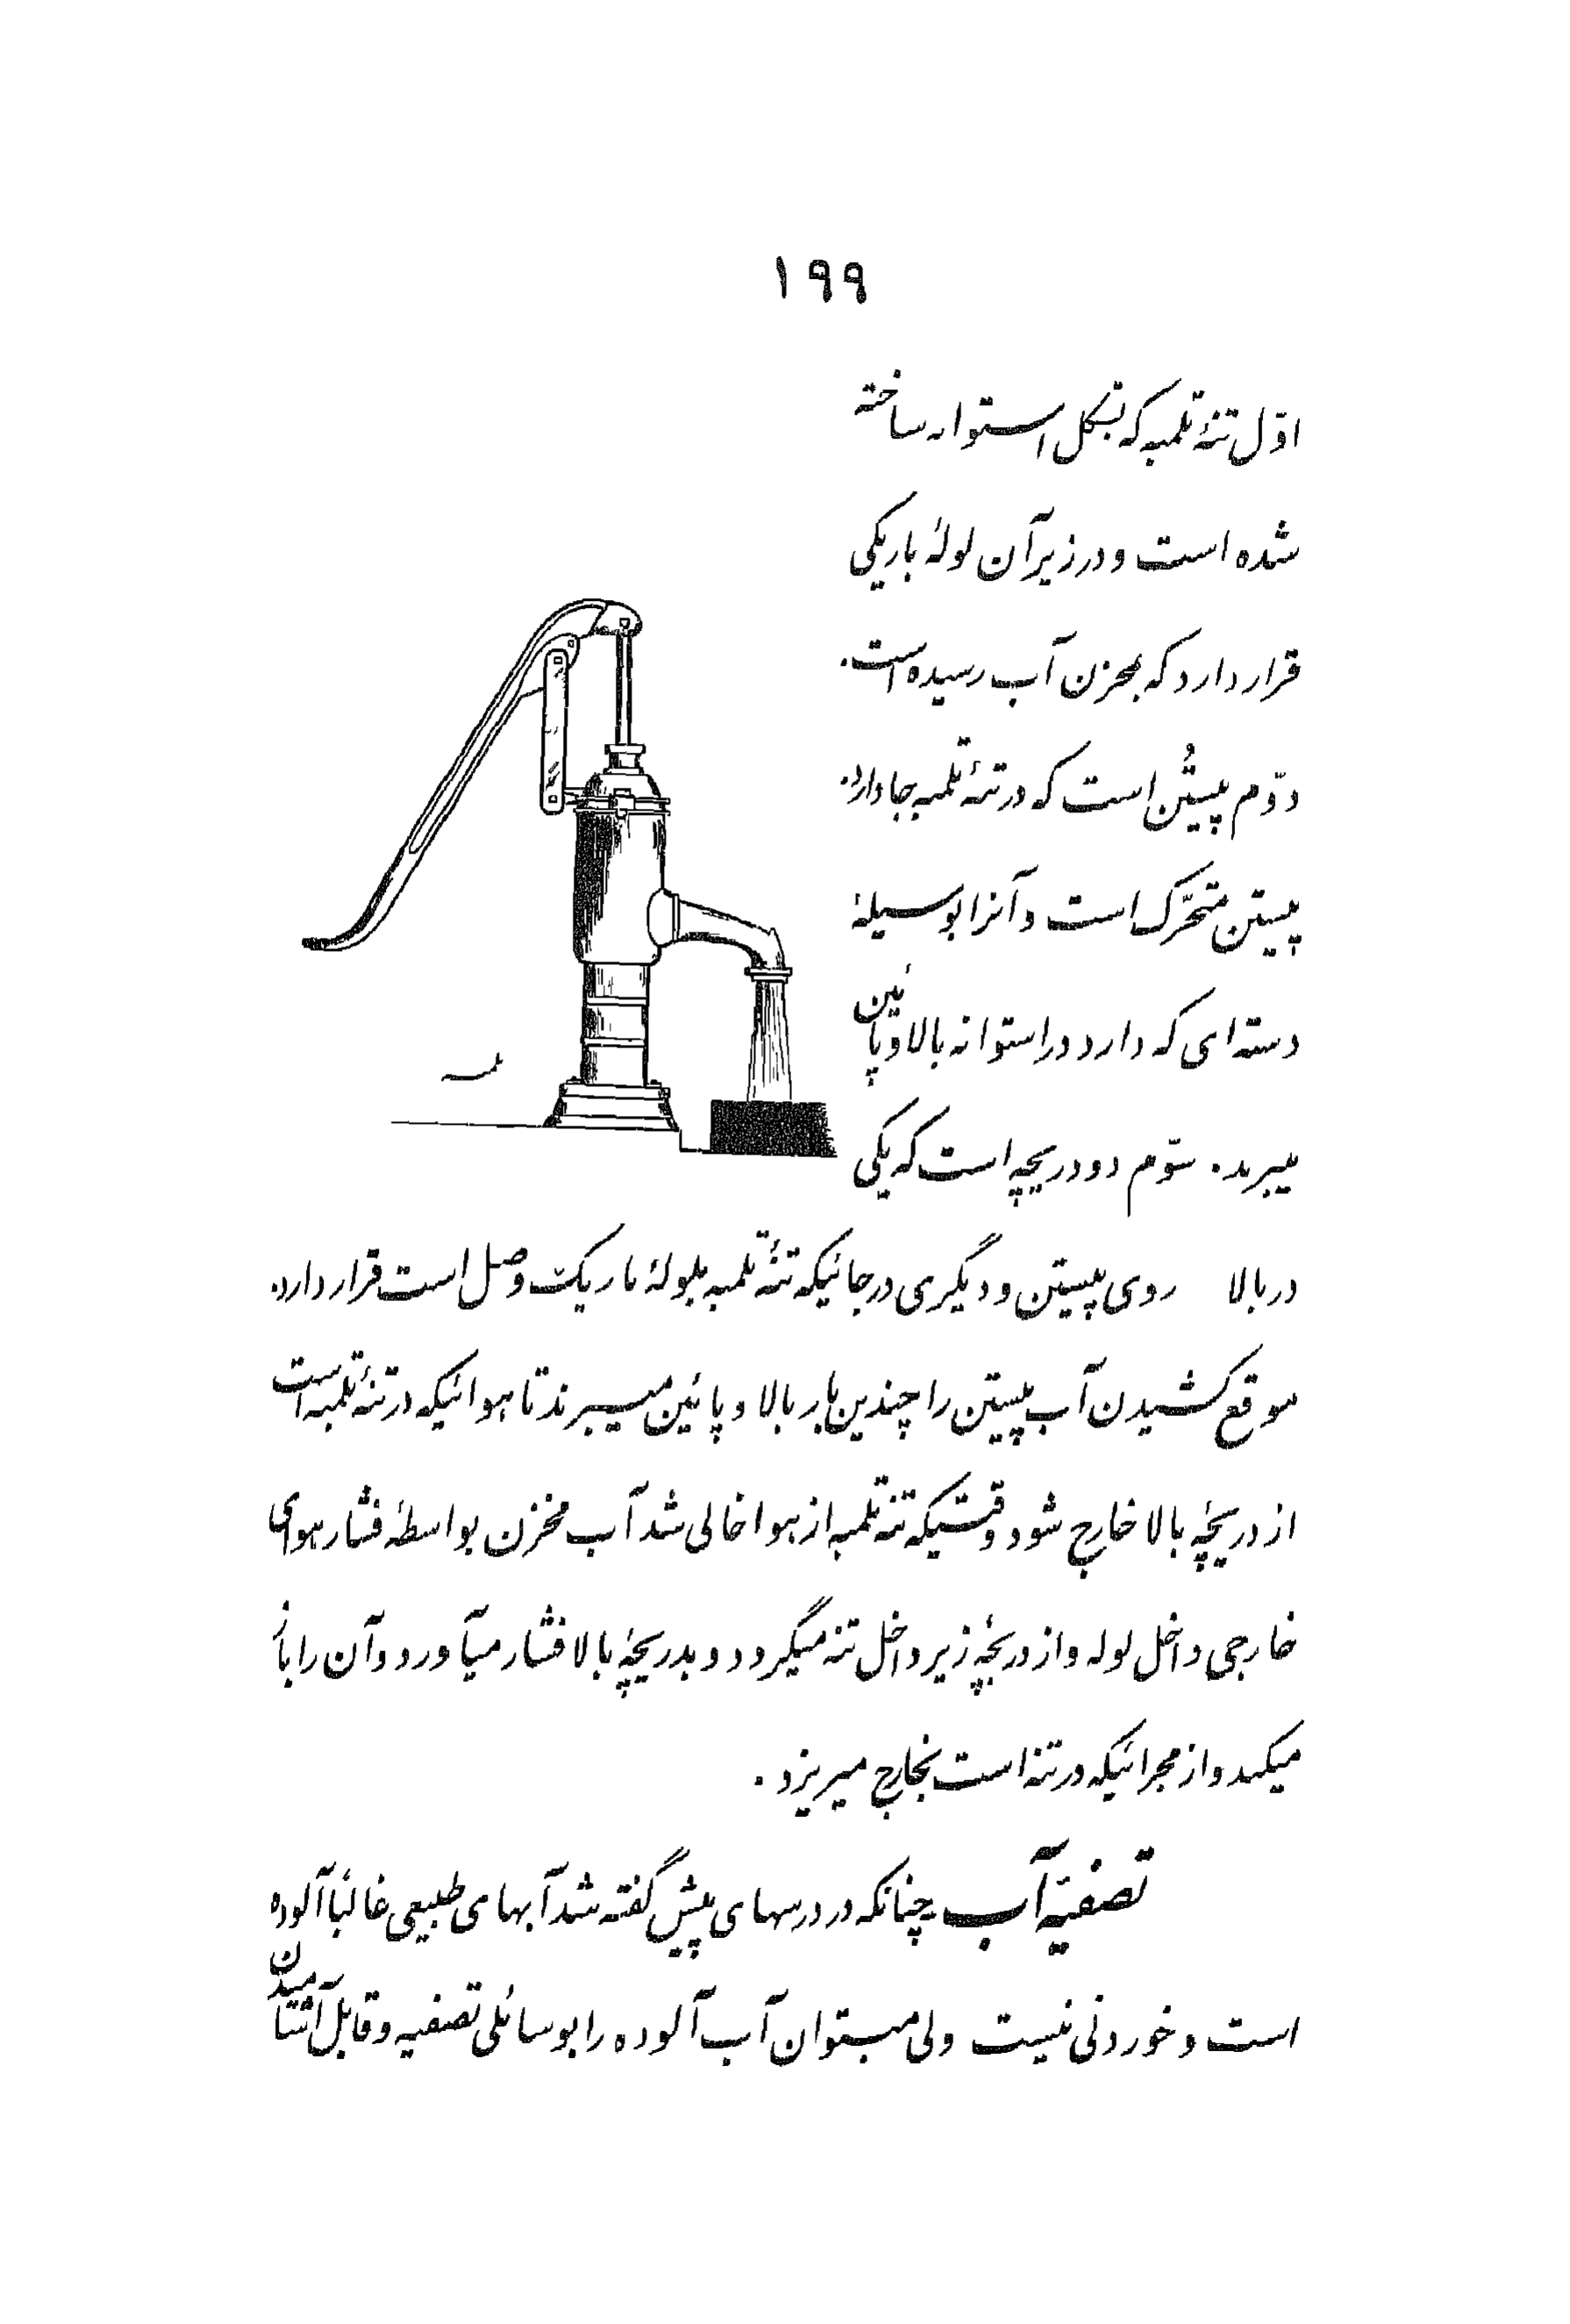 ۱۹۹
اوّل تنهٔ تلمبه که بشکل استوانه ساخته
شده است و در زیر آن لولهٔ باریکی
قرار دارد که بمخزن آب رسیده است.
دوّم پیستُن است که در تنهٔ تلمبه جا دارد.
پیستن متحرّک است و آنرا بوسیلهٔ
دسته‌ای که دارد در استوانه بالا و پائین
میبرند. سوّم دو دریچه است که یکی
در بالا روی پیستن و دیگری در جائیکه تنهٔ تلمبه بلولهٔ باریک وصل است قرار دارد.
موقع کشیدن آب پیستن را چندین بار بالا و پائین میبرند تا هوائیکه در تنهٔ تلمبه است
از دریچهٔ بالا خارج شود وقتیکه تنه تلمبه از هوا خالی شد آب مخزن بواسطهٔ فشار هوای
خارجی داخل لوله و از دریچهٔ زیر داخل تنه میگردد و بدریچهٔ بالا فشار میآورد و آن را باز
میکند و از مجرائیکه در تنه است بخارج میریزد.
تصفیهٔ آب چنانکه در درسهای پیش گفته شد آبهای طبیعی غالبًا آلوده
است و خوردنی نیست ولی میتوان آب آلوده را بوسائلی تصفیه و قابل آشامیدن
تلمبه